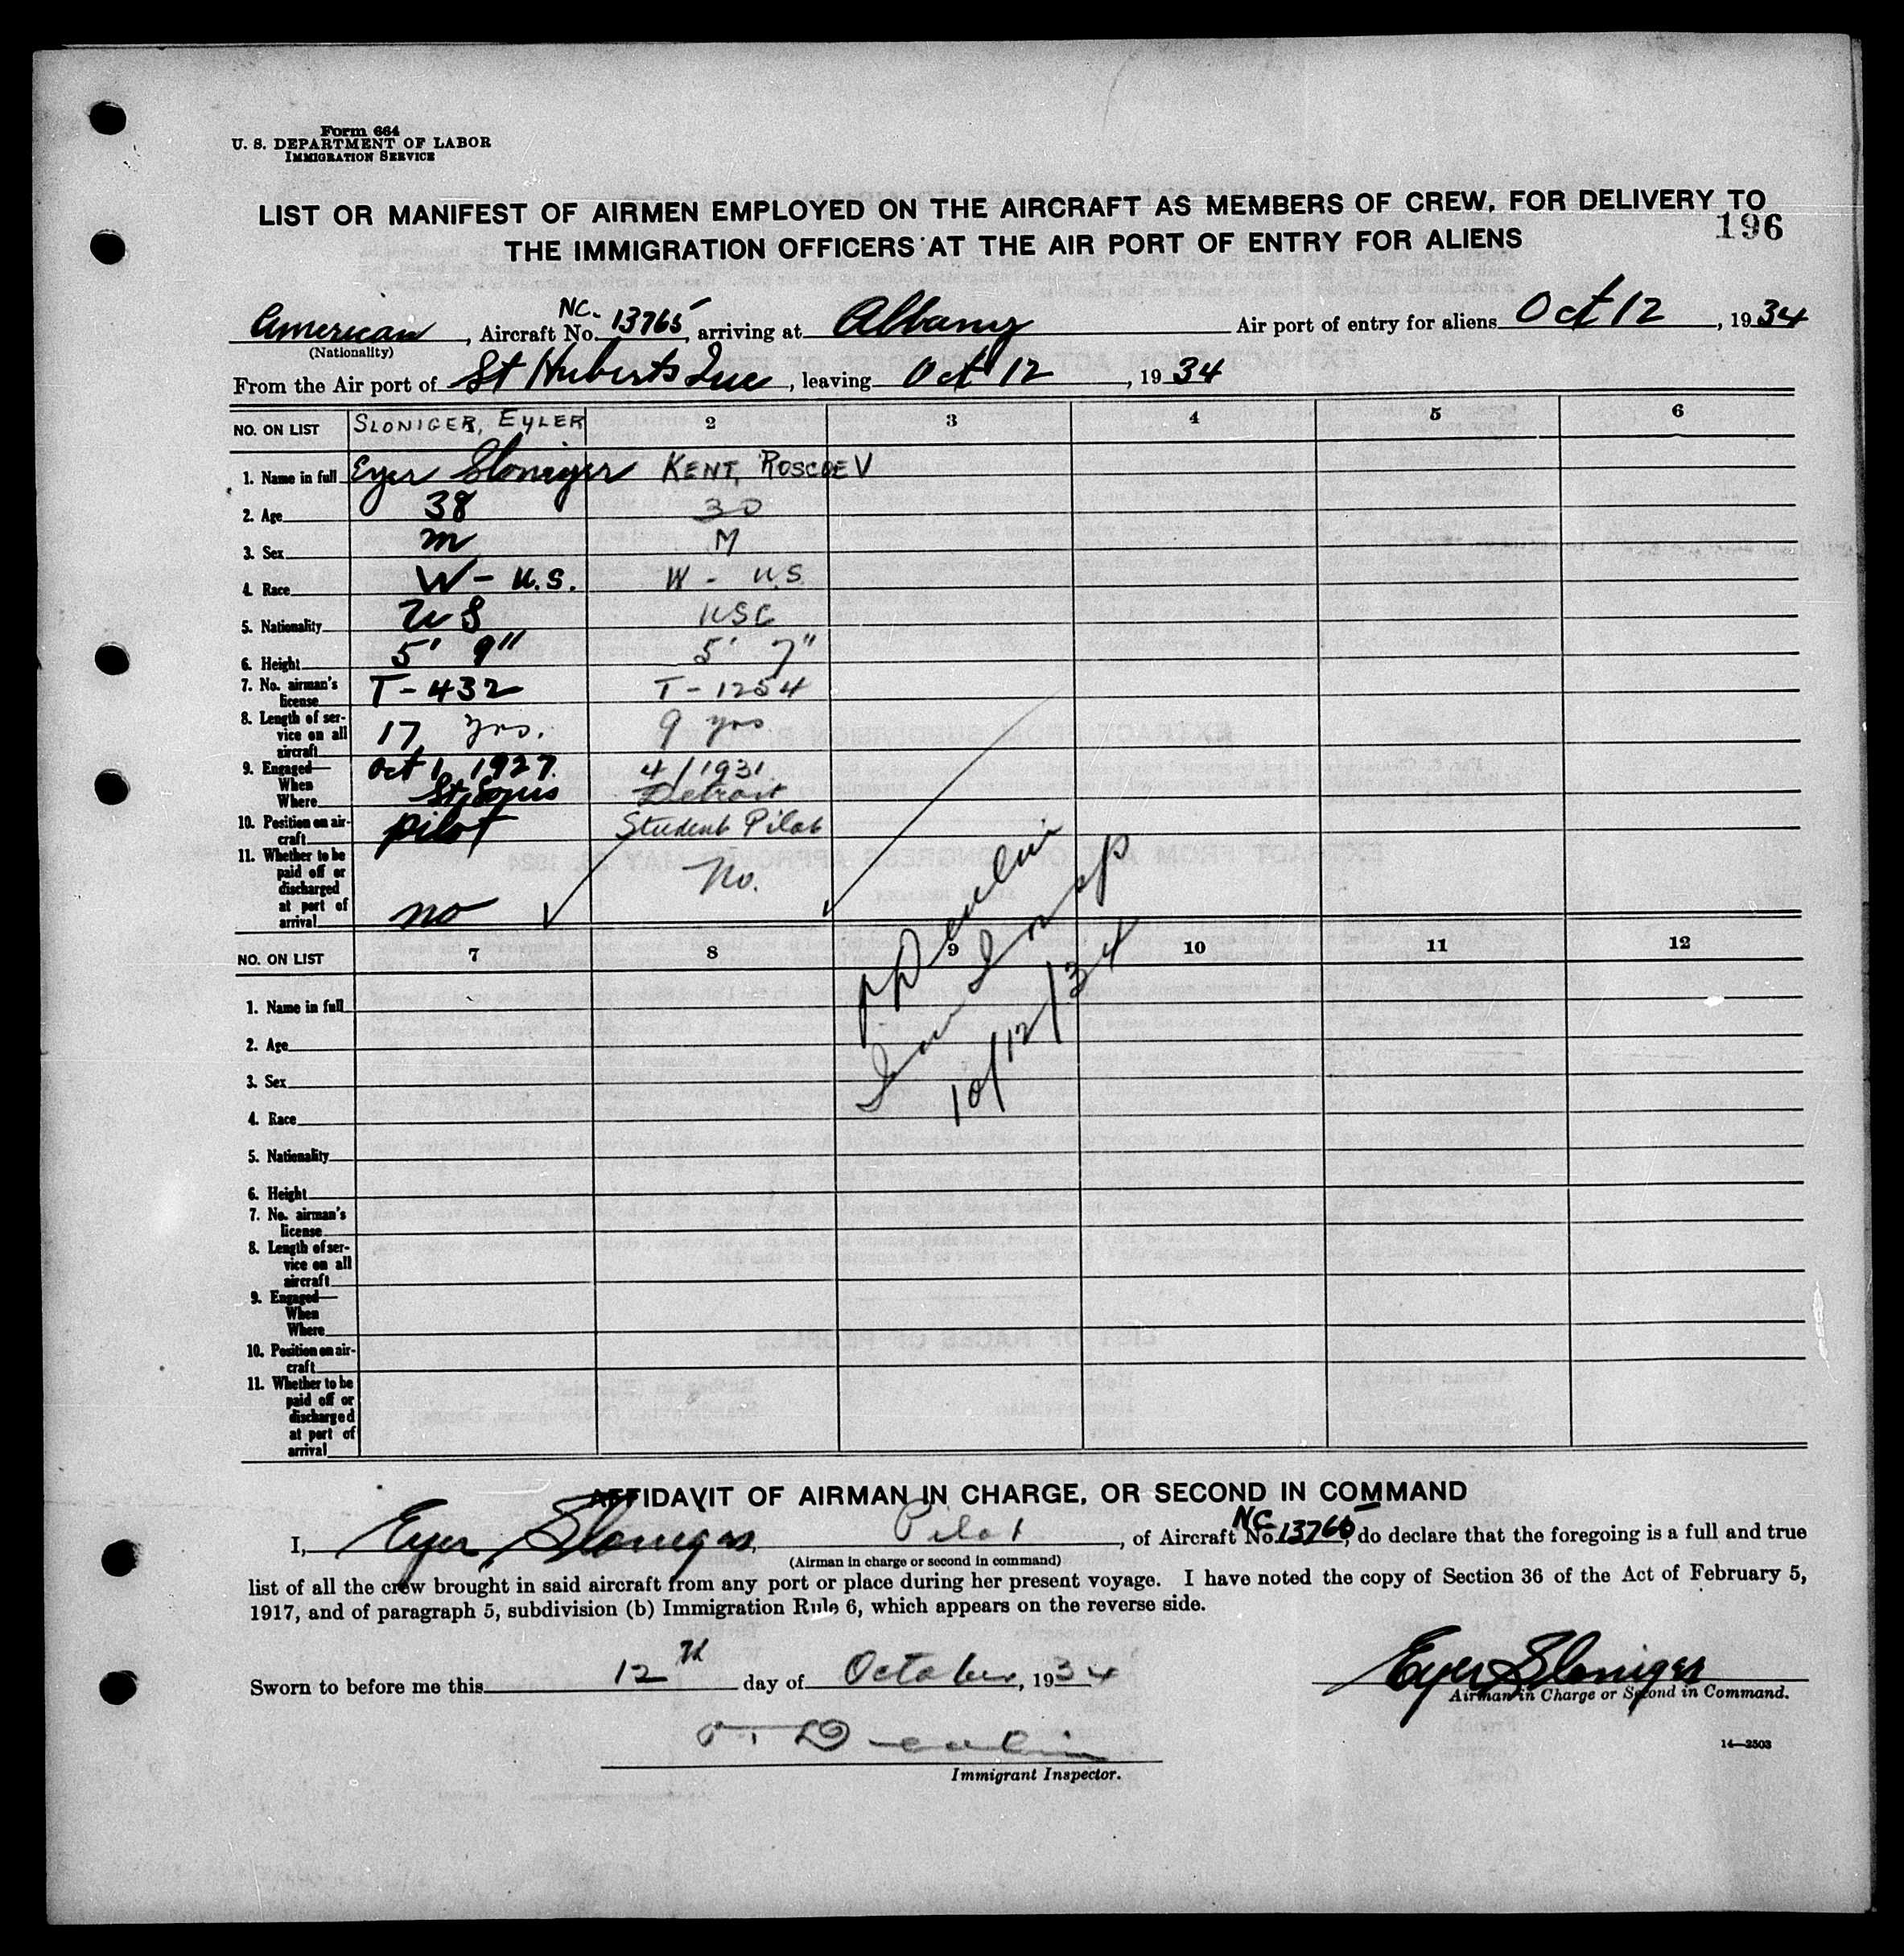 Form 664
U. S. DEPARTMENT OF LABOR
IMMIGRATION SERVICE
LIST OR MANIFEST OF AIRMEN EMPLOYED ON THE AIRCRAFT AS MEMBERS OF CREW, FOR DELIVERY TO
THE IMMIGRATION OFFICERS AT THE AIR PORT OF ENTRY FOR ALIENS
196
American, Aircraft No. NC. 13765, arriving at Albany Air port of entry for aliens Oct 12, 1934
(Nationality)
From the Air port of St Huberts Que, leaving Oct 12, 1934
NO. ON LIST SLONIGER, EYLER 2 3 4 5 6
1. Name in full Eyer Sloniger KENT, ROSCOE V
2. Age 38 30
3. Sex m M
4. Race W - U.S. W - U.S
5. Nationality US USC
6. Height 5' 9" 5' 7"
7. No. airman's license T-432 T-1254
8. Length of service on all aircraft 17 yrs. 9 yrs
9. Engaged—When Oct 1, 1927. 4/1931.
Where St Louis Detroit
10. Position on aircraft pilot Student Pilot
11. Whether to be paid off or discharged at port of arrival no No.
10/12/34
NO. ON LIST 7 8 9 10 11 12
1. Name in full
2. Age
3. Sex
4. Race
5. Nationality
6. Height
7. No. airman's license
8. Length of service on all aircraft
9. Engaged—When
Where
10. Position on aircraft
11. Whether to be paid off or discharged at port of arrival
AFFIDAVIT OF AIRMAN IN CHARGE, OR SECOND IN COMMAND
I, Eyer Sloniger, Pilot, of Aircraft No. NC 13765, do declare that the foregoing is a full and true
(Airman in charge or second in command)
list of all the crew brought in said aircraft from any port or place during her present voyage. I have noted the copy of Section 36 of the Act of February 5,
1917, and of paragraph 5, subdivision (b) Immigration Rule 6, which appears on the reverse side.
Sworn to before me this 12th day of October, 1934
Eyer Sloniger
Airman in Charge or Second in Command.
Immigrant Inspector.
14—2503